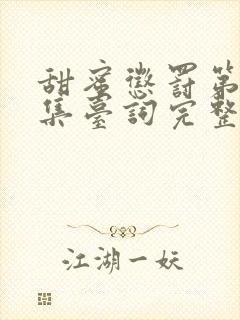 甜蜜懲罰第
集臺詞完整
江湖一妖